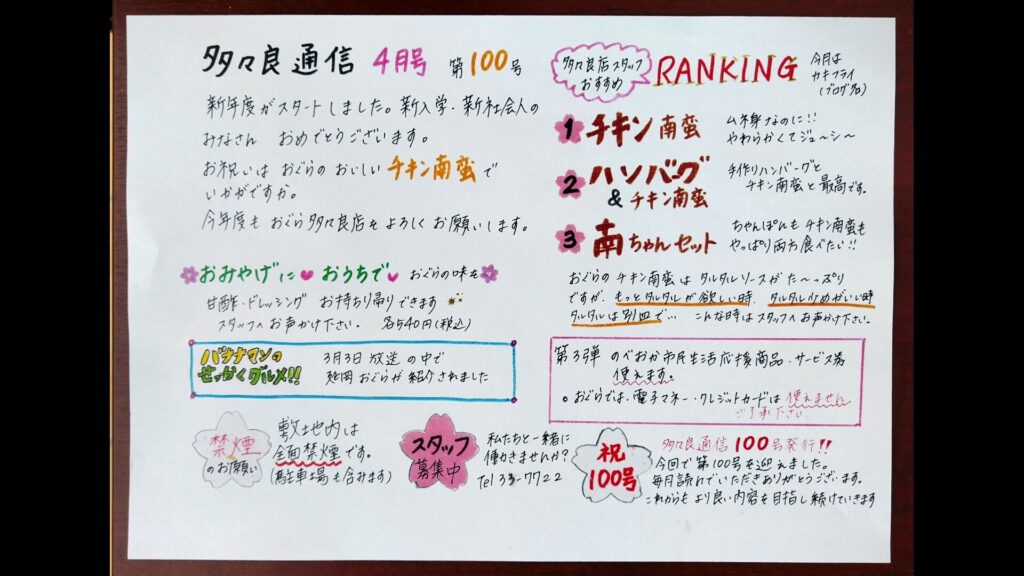 多々良通信 4月号 第100号
新年度がスタートしました。新入学・新社会人の
みなさん おめでとうございます。
お祝いは おぐらの おいしい チキン南蛮で
いかがですか。
今年度も おぐら多々良店を よろしく お願いします。
おみやげに おうちで おぐらの味を
甘酢・ドレッシング お持ち帰りできます
スタッフへ お声かけ下さい。 各540円(税込)
バナナマンの
せっかくグルメ!!
3月3日 放送 の中で
延岡 おぐらが 紹介されました
禁煙
のお願い
敷地内は
全面禁煙です。
(駐車場も含みます)
スタッフ
募集中
私たちと一緒に
働きませんか?
Tel 33-7722
多々良店スタッフ
おすすめ
RANKING
今月は
カキフライ
(ブログ名)
1 チキン南蛮
ムネ身なのに!!
やわらかくてジューシー
2 ハンバーグ
& チキン南蛮
手作りハンバーグと
チキン南蛮と最高です。
3 南ちゃんセット
ちゃんぽんも チキン南蛮も
やっぱり両方食べたい!!
おぐらの チキン南蛮は タルタルソースが た〜〜っぷり
ですが、もっとタルタルが欲しい時、タルタル少めがいい時
タルタルは別皿で… こんな時は スタッフへ お声かけ下さい。
第3弾 のべおか市民生活応援商品・サービス券
使えます。
• おぐらでは、電子マネー・クレジットカードは 使えません
ご了承下さい。
祝
100号
多々良通信 100号発行!!
今回で 第100号を迎えました。
毎月読んでいただきありがとうございます。
これからも より良い内容を目指し続けていきます